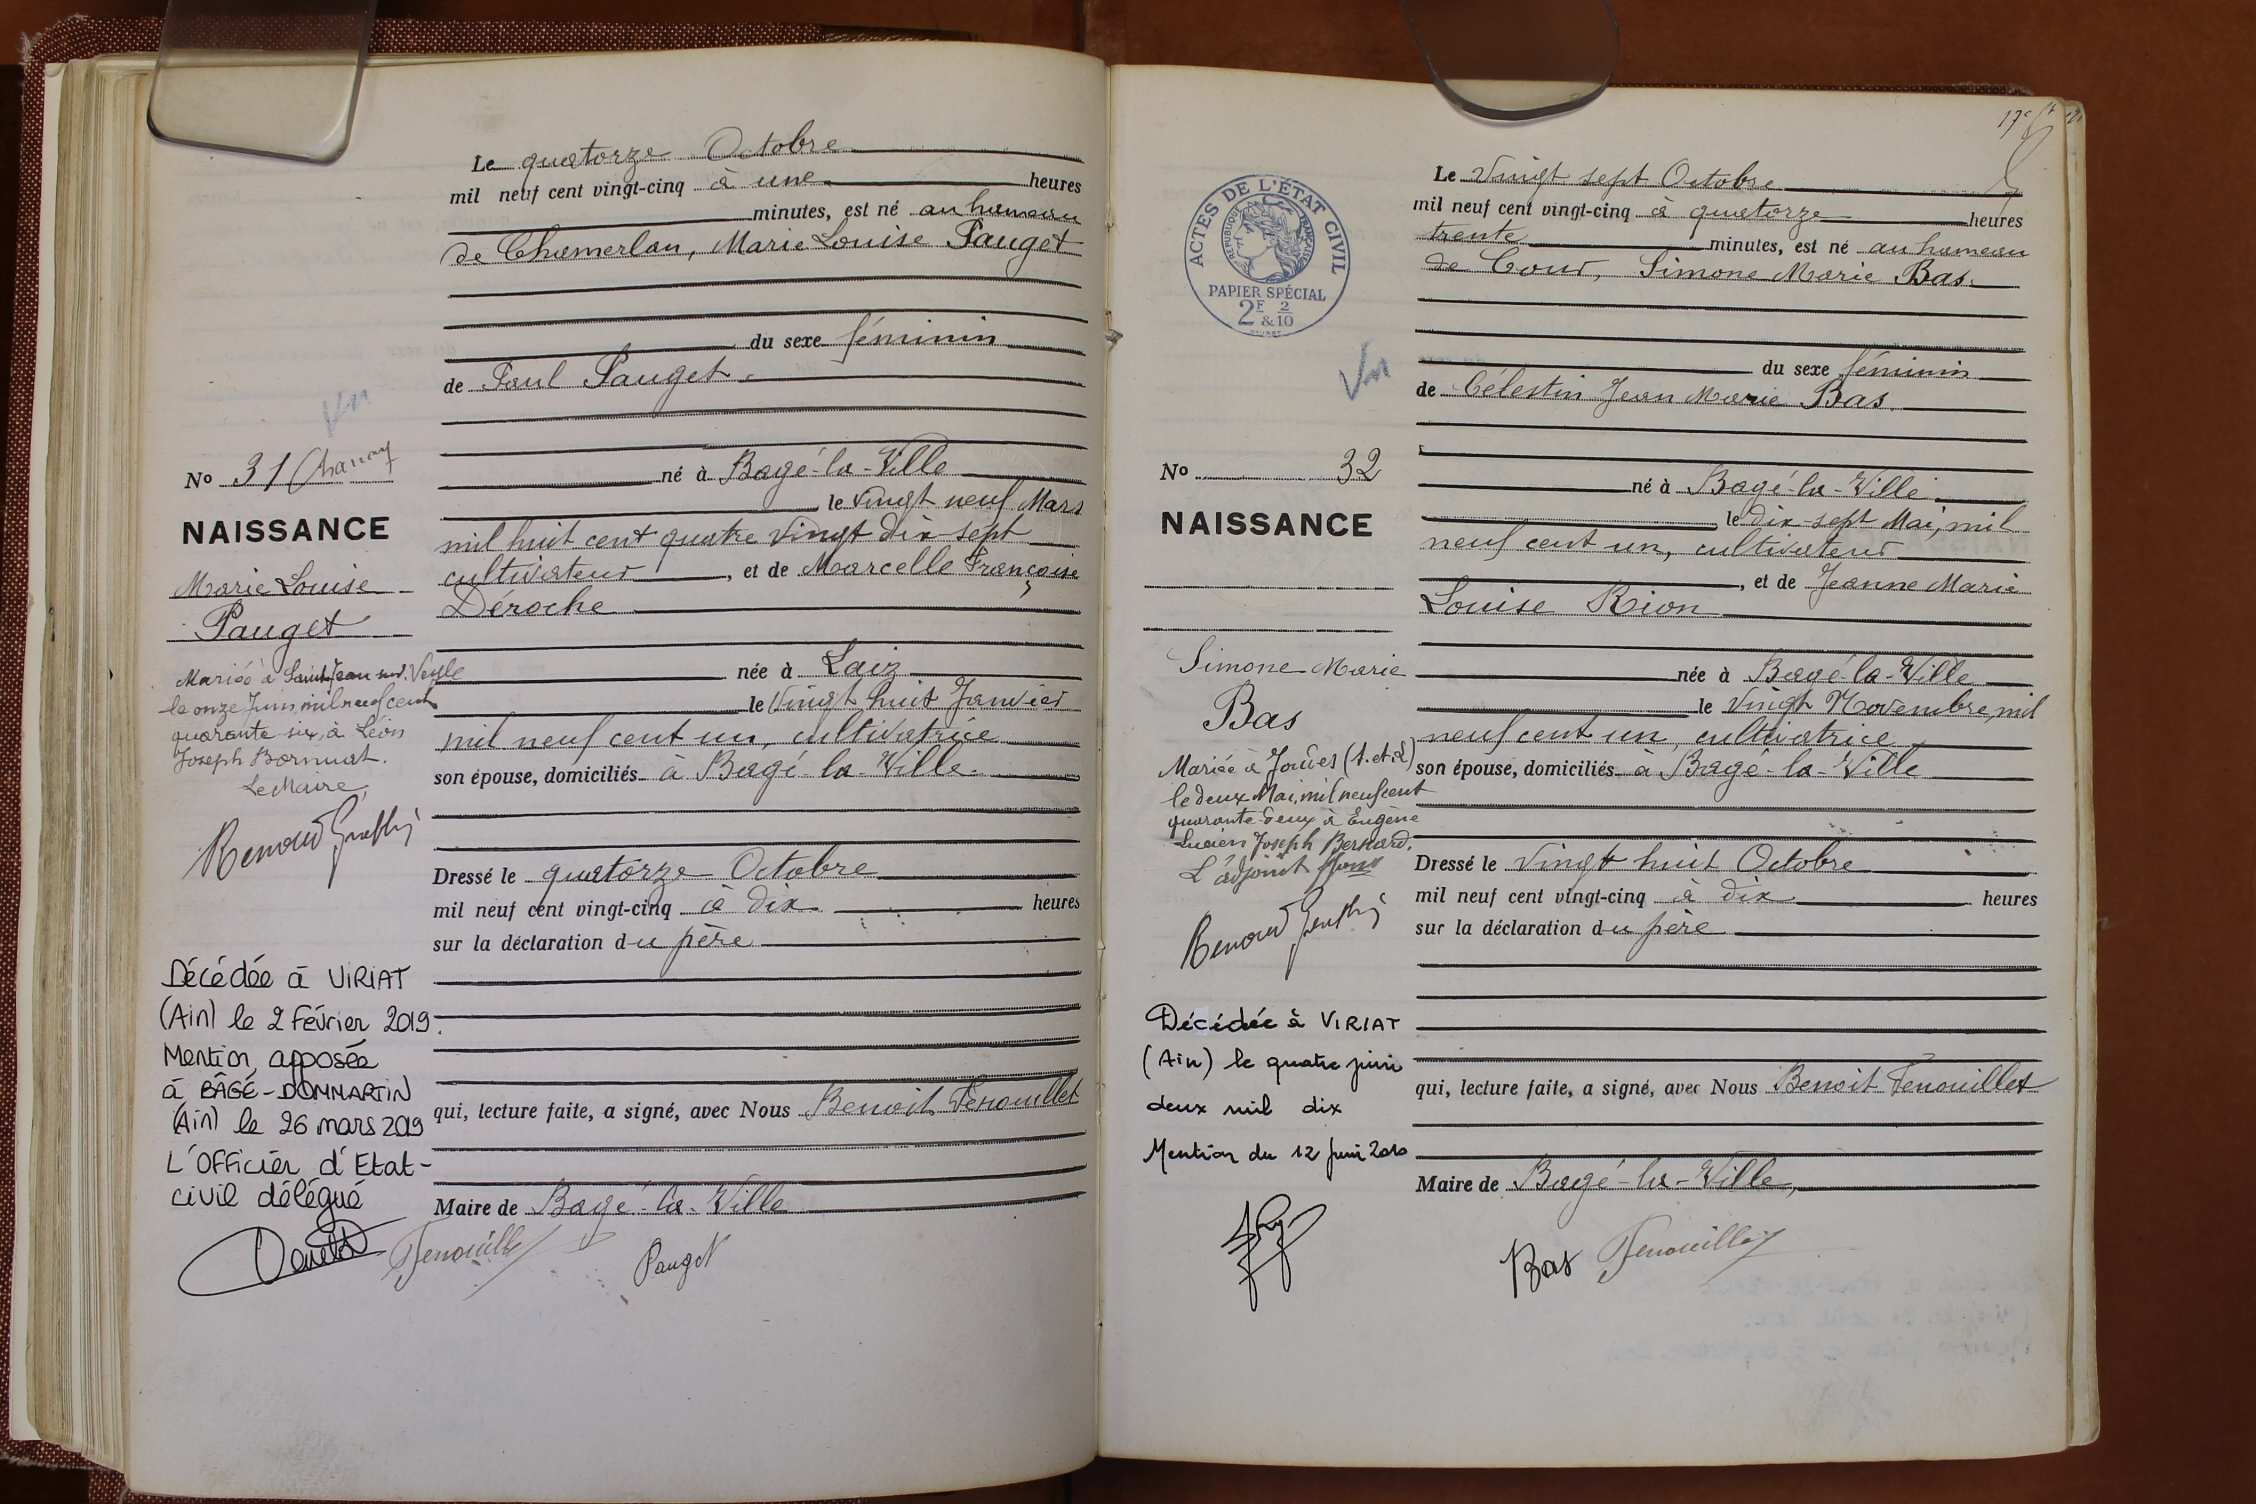 Le quatorze Octobre
mil neuf cent vingt-cinq à une heures
minutes, est né au hameau
de Chamerlan, Marie Louise Pauget
du sexe féminin
de Paul Pauget
né à Bagé-la-Ville
le vingt neuf Mars
mil huit cent quatre vingt dix-sept
cultivateur, et de Marcelle Françoise
Déroche
née à Laiz
le vingt huit Janvier
mil neuf cent un, cultivatrice
son épouse, domiciliés à Bagé-la-Ville
Dressé le quatorze Octobre
mil neuf cent vingt-cinq à dix heures
sur la déclaration du père
qui, lecture faite, a signé, avec Nous Benoit Fenouillet
Maire de Bagé-la-Ville
Fenouillet
Pauget
No 31 Chanay
NAISSANCE
Marie Louise
Pauget
Mariée à Saint Jean sur Veyle
le onze Juin mil neuf cent
quarante six, à Léon
Joseph Bornuat.
Le Maire,
Décédée à VIRIAT
(Ain) le 2 février 2019.
Mention apposée
à BÂGÉ-DOMMARTIN
(Ain) le 26 mars 2019
L'Officier d'Etat-
civil délégué
ACTES DE L'ÉTAT CIVIL
RÉPUBLIQUE FRANÇAISE
PAPIER SPÉCIAL
2F & 2/10
Le Vingt sept Octobre
mil neuf cent vingt-cinq à quatorze heures
trente minutes, est né au hameau
de Cour, Simone Marie Bas.
du sexe féminin
de Célestin Jean Marie Bas.
né à Bagé-la-Ville
le dix-sept Mai, mil
neuf cent un, cultivateur
, et de Jeanne Marie
Louise Rion
née à Bagé-la-Ville
le Vingt Novembre, mil
neuf cent un, cultivatrice
son épouse, domiciliés à Bagé-la-Ville
Dressé le Vingt huit Octobre
mil neuf cent vingt-cinq à dix heures
sur la déclaration du père
qui, lecture faite, a signé, avec Nous Benoit Fenouillet
Maire de Bagé-la-Ville,
Bas
Fenouillet
No 32
NAISSANCE
Simone Marie
Bas
Mariée à (S.et.L)
le deux Mai, mil neuf cent
quarante-deux à Eugène
Lucien Joseph Bernard.
L'adjoint
Décédée à VIRIAT
(Ain) le quatre juin
deux mil dix
Mention du 12 Juin 2010